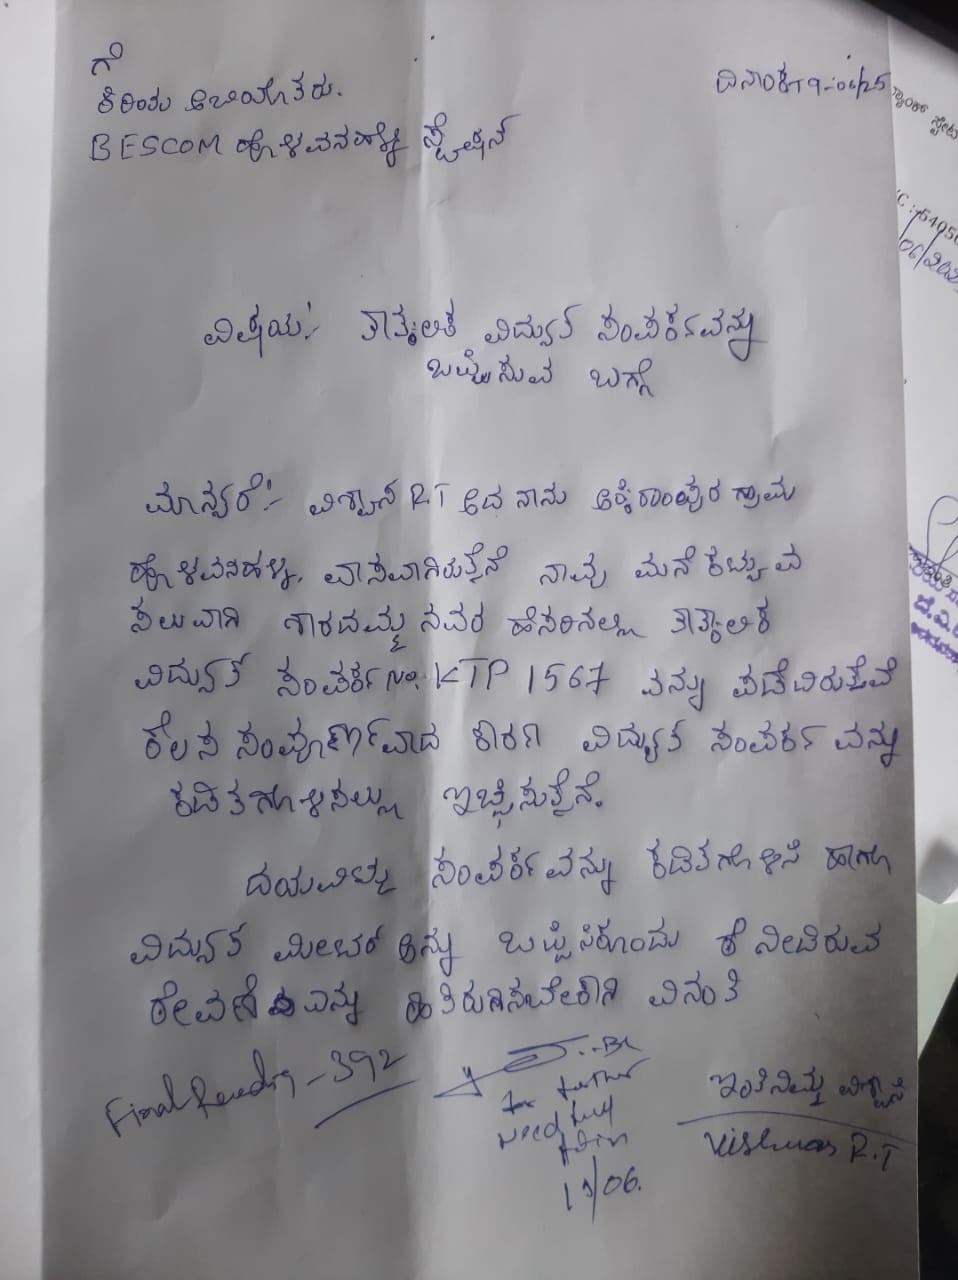 ಗೆ
ಕಿರಿಯ ಅಭಿಯಂತರು.
ದಿನಾಂಕ 19-06/25
BESCOM ಹೊಳವನಹಳ್ಳಿ ಸ್ಟೇಷನ್
ವಿಷಯ:- ತಾತ್ಕಾಲಿಕ ವಿದ್ಯುತ್ ಸಂಪರ್ಕವನ್ನು
ಒಪ್ಪಿಸುವ ಬಗ್ಗೆ
ಮಾನ್ಯರೆ:- ವಿಶ್ವಾಸ R.T ಆದ ನಾನು ಅಕ್ಕಿರಾಂಪುರ ಗ್ರಾಮ
ಹೊಳವನಹಳ್ಳಿ. ವಾಸವಾಗಿರುತ್ತೇನೆ ನಾವು ಮನೆ ಕಟ್ಟುವ
ಸಲುವಾಗಿ ಶಾರದಮ್ಮ ನವರ ಹೆಸರಿನಲ್ಲಿ ತಾತ್ಕಾಲಿಕ
ವಿದ್ಯುತ್ ಸಂಪರ್ಕ No. KTP 1567 ವನ್ನು ಪಡೆದಿರುತ್ತೇವೆ
ಕೆಲಸ ಸಂಪೂರ್ಣವಾದ ಕಾರಣ ವಿದ್ಯುತ್ ಸಂಪರ್ಕವನ್ನು
ಕಡಿತಗೊಳಿಸಲು ಇಚ್ಛಿಸುತ್ತೇನೆ.
ದಯವಿಟ್ಟು ಸಂಪರ್ಕವನ್ನು ಕಡಿತಗೊಳಿಸಿ ಹಾಗೂ
ವಿದ್ಯುತ್ ಮೀಟರ್ ಅನ್ನು ಒಪ್ಪಿಸಿಕೊಂಡು ಕೆ ನೀಡಿರುವ
ಠೇವಣಿ ವನ್ನು ಹಿಂತಿರುಗಿಸಬೇಕಾಗಿ ವಿನಂತಿ
Final Reading - 392
for further
need full
11/06.
ಇಂತಿ ನಿಮ್ಮ ವಿಶ್ವಾಸಿ
Vishwas R.T